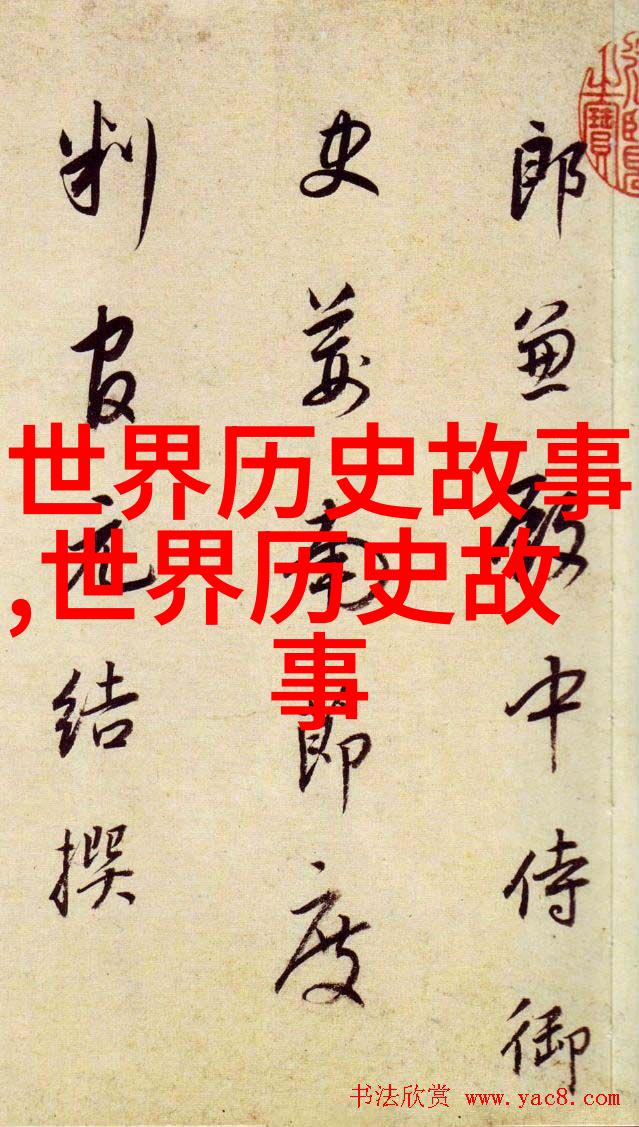 郎兼殿中侍御
史荆南節度
判官元結撰
世界历史故事
,世界历史故
事
书法欣赏 www.yac8.com